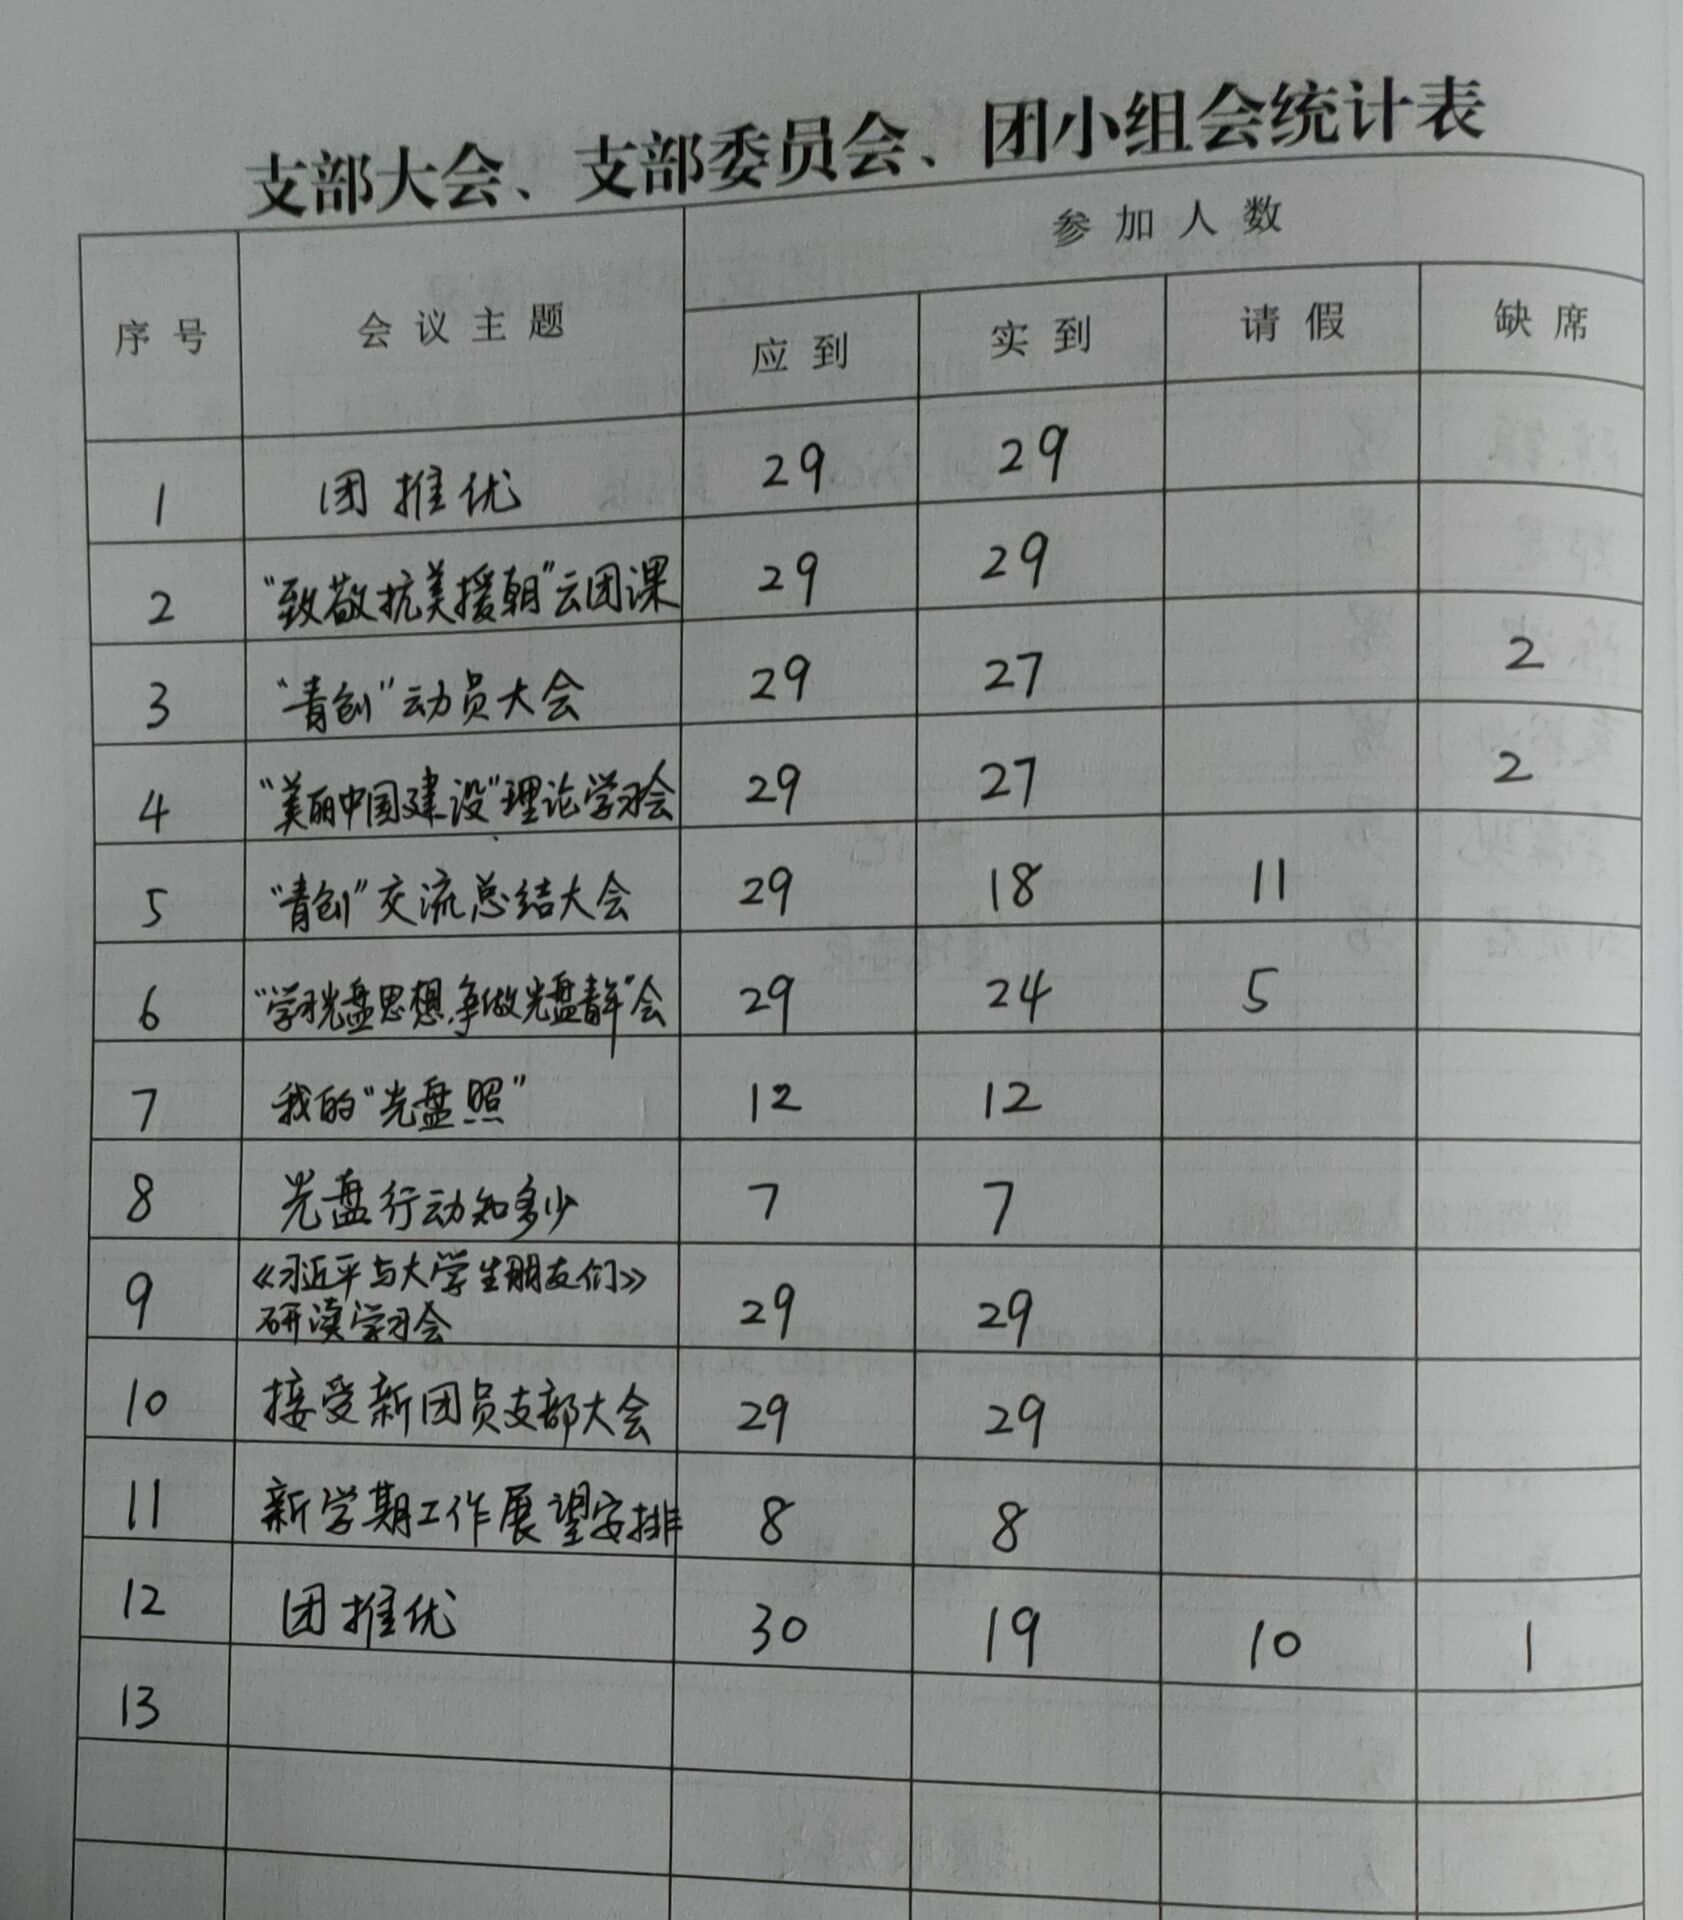 支部大会、支部委员会、团小组会统计表
序号 会议主题 参加人数
应到 实到 请假 缺席
1 团推优 29 29
2 “致敬抗美援朝”云团课 29 29
3 “青创”动员大会 29 27 2
4 “美丽中国建设”理论学习会 29 27 2
5 “青创”交流总结大会 29 18 11
6 “学习光盘思想,争做光盘青年”会 29 24 5
7 我的“光盘照” 12 12
8 光盘行动知多少 7 7
9 《习近平与大学生朋友们》
研读学习会 29 29
10 接受新团员支部大会 29 29
11 新学期工作展望安排 8 8
12 团推优 30 19 10 1
13